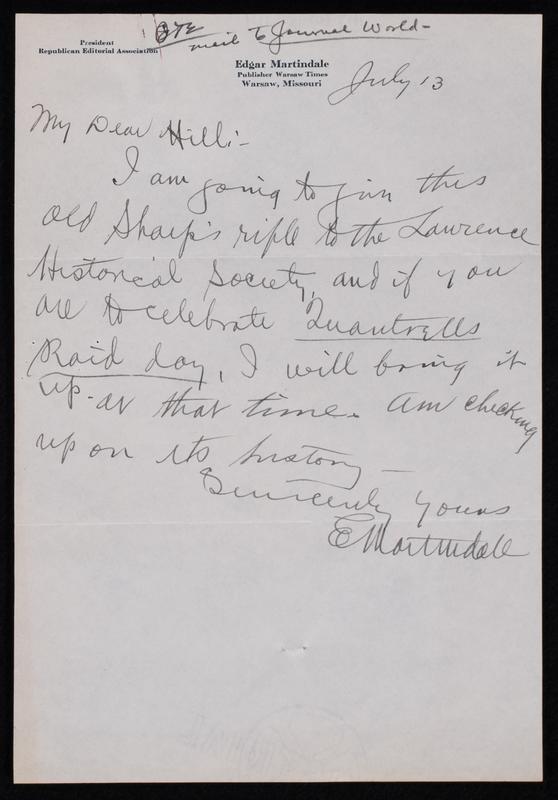 mail to Journal World -
President
Republican Editorial Association
Edgar Martindale
Publisher Warsaw Times
Warsaw, Missouri
July 13
My Dear Hill:-
I am going to give this
old Sharp's rifle to the Lawrence
Historical Society, and if you
are to celebrate Quantrells
Raid day, I will bring it
up - at that time. Am checking
up on its history -
Sincerely yours
E Martindale